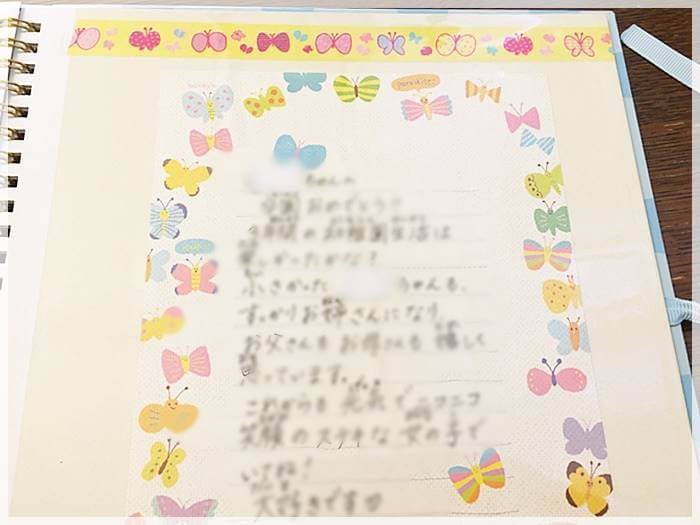 ちゃんへ
卒園おめでとう♡
年間の幼稚園生活は
楽しかったかな？
小さかった ちゃんも、
すっかりお姉さんになり、
お父さんもお母さんも嬉しく
思っています。
これからも元気でニコニコ
笑顔のステキな女の子で
いてね！
大好きです♡